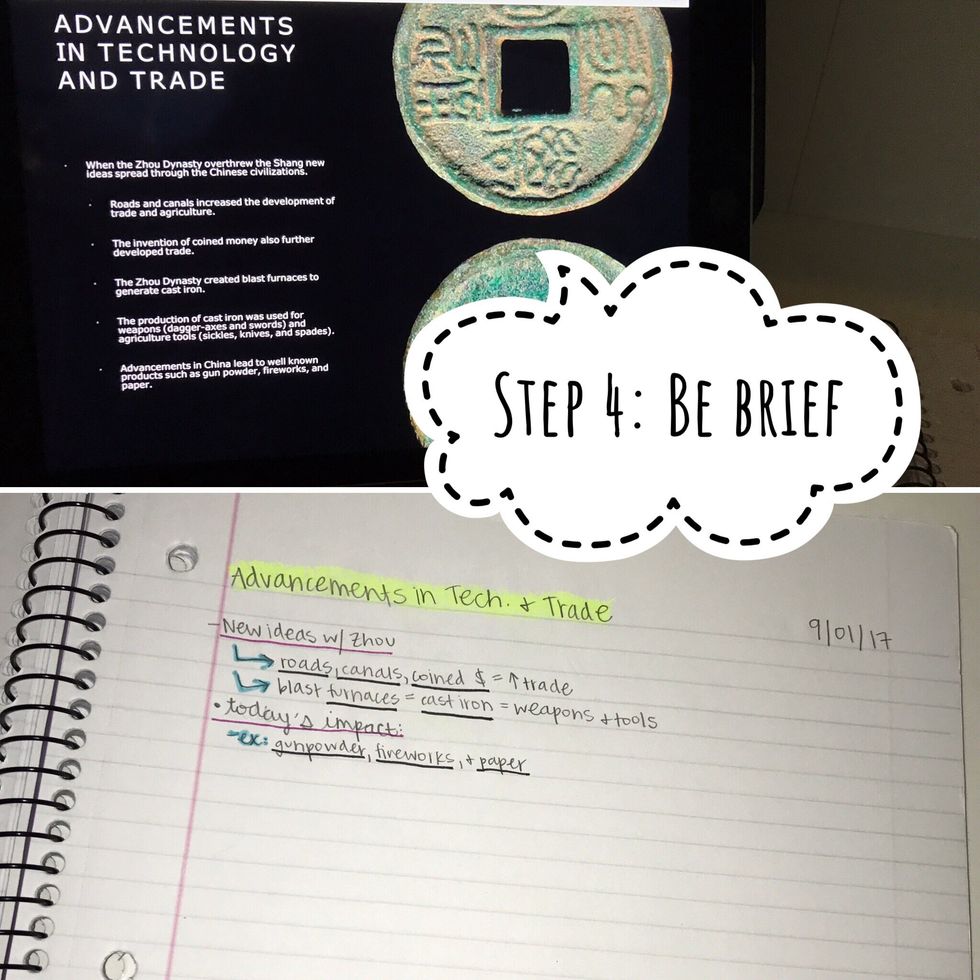 ADVANCEMENTS
IN TECHNOLOGY
AND TRADE
· When the Zhou Dynasty overthrew the Shang new
ideas spread through the Chinese civilizations.
· Roads and canals increased the development of
trade and agriculture.
· The invention of coined money also further
developed trade.
· The Zhou Dynasty created blast furnaces to
generate cast iron.
· The production of cast iron was used for
weapons (dagger-axes and swords) and
agriculture tools (sickles, knives, and spades).
· Advancements in China lead to well known
products such as gun powder, fireworks, and
paper.
STEP 4: BE BRIEF
Advancements in Tech. & Trade
9/01/17
- New ideas w/ Zhou
↳ roads, canals, coined $ = ↑ trade
↳ blast furnaces = cast iron = weapons & tools
• today's impact:
- ex: gunpowder, fireworks, & paper